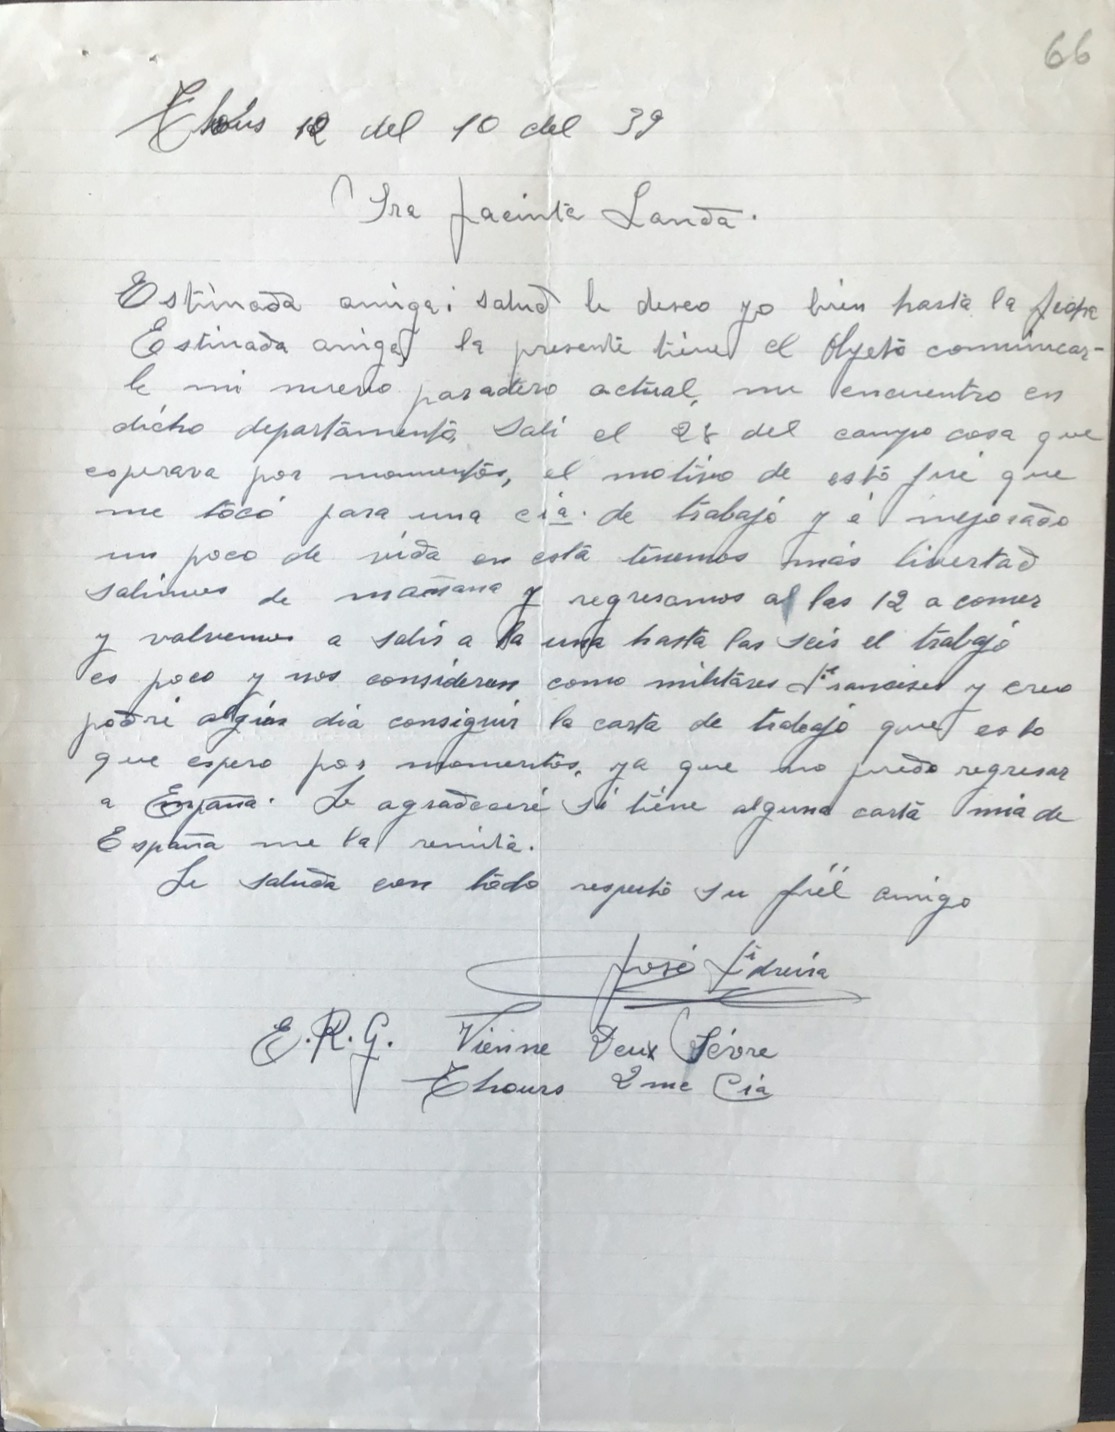 66
Thous 12 del 10 del 39
Sra Jacinta Landa.
Estimada amiga; salud le deseo yo bien hasta la fecha
Estimada amiga, la presente tiene el Objeto comunicar-
le mi nuevo paradero actual, me encuentro en
dicho departamento, Sali el 28 del campo cosa que
esperava por momentos, el motivo de esto fué que
me tocó para una cía. de trabajo y é mejorado
un poco de vida en está tenemos más livertad
salimos de mañana y regresamos a las 12 a comer
y volvemos a salir a la una hasta las seis el trabajo
es poco y nos consideran como militares franceses y creo
podré algún dia conseguir la carta de trabajo que es lo
que espero por momentos, ya que no puedo regresar
a España. Le agradeceré si tiene alguna carta mia de
España me la remita.
Le saluda con todo respeto su fiél amigo
José
E.R.G. Vienne Deux Sévre
Thours 2me Cia